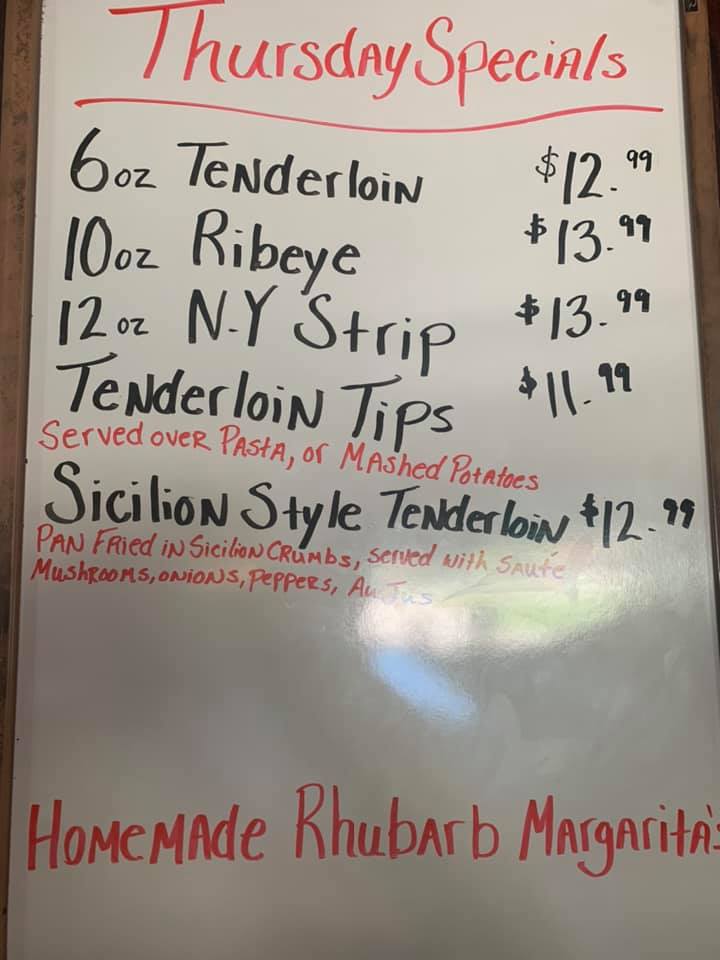 Thursday Specials
6oz Tenderloin $12.99
10oz Ribeye $13.99
12oz N-Y Strip $13.99
Tenderloin Tips $11.99
Served over Pasta, or Mashed Potatoes
Sicilion Style Tenderloin $12.99
Pan Fried in Sicilion Crumbs, served with Sauté
Mushrooms, onions, Peppers, Au Jus
Homemade Rhubarb Margarita's